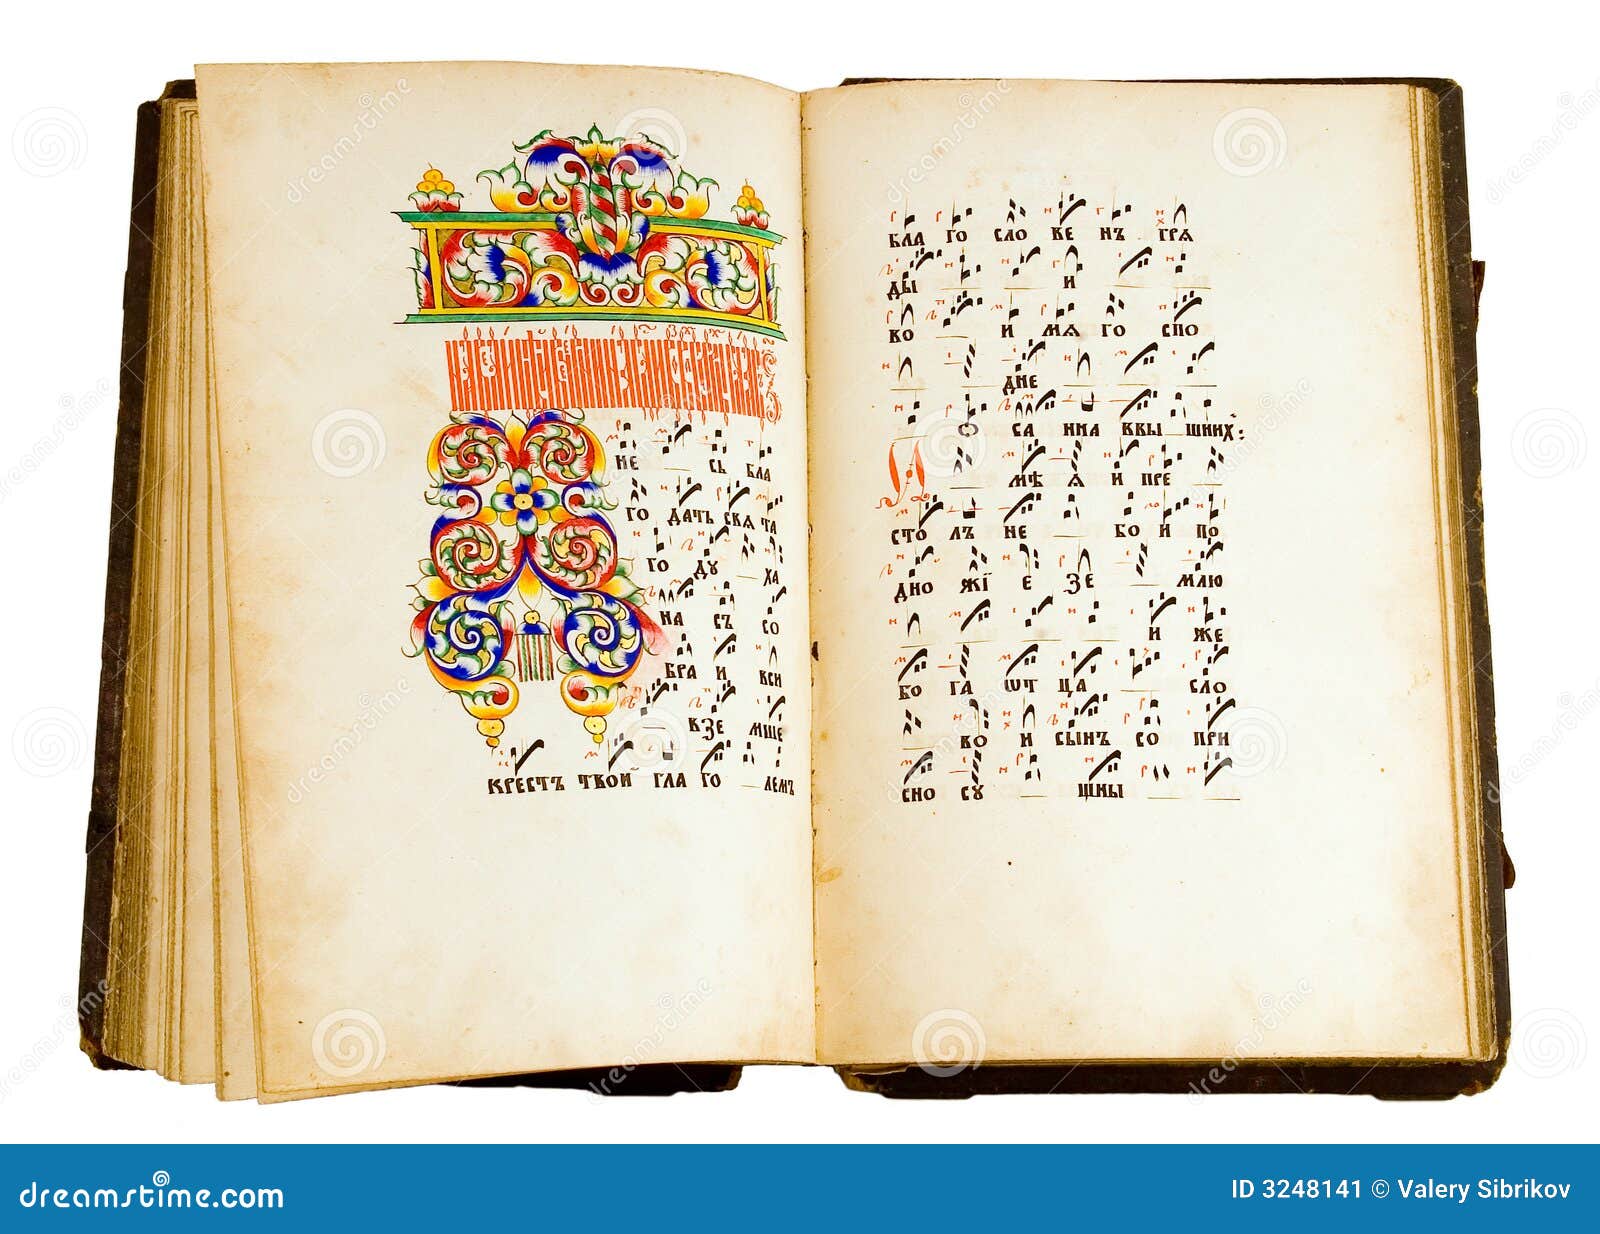 НЕ СЬ БЛА
ГО ДАТЬ СВЯ ТА
ГО ДУ ХА
НА СЪ СО
БРА И ВСИ
ВЗЕ МШЕ
КРЕСТЪ ТВОЙ ГЛА ГО ЛЕМЪ
БЛА ГО СЛО ВЕ НЪ ГРЯ
ДЫ И
ВО И МЯ ГО СПО
ДНЕ
О СА ННА ВВЫ ШНИХ:
МѢ Я И ПРЕ
СТО ЛЪ НЕ БО И ПО
ДНО ЖІ Е ЗЕ МЛЮ
И ЖЕ
БО ГА ѾТ ЦА СЛО
ВО И СЫНЪ СО ПРИ
СНО СУ ЩНЫ
dreamstime.com
ID 3248141 © Valery Sibrikov